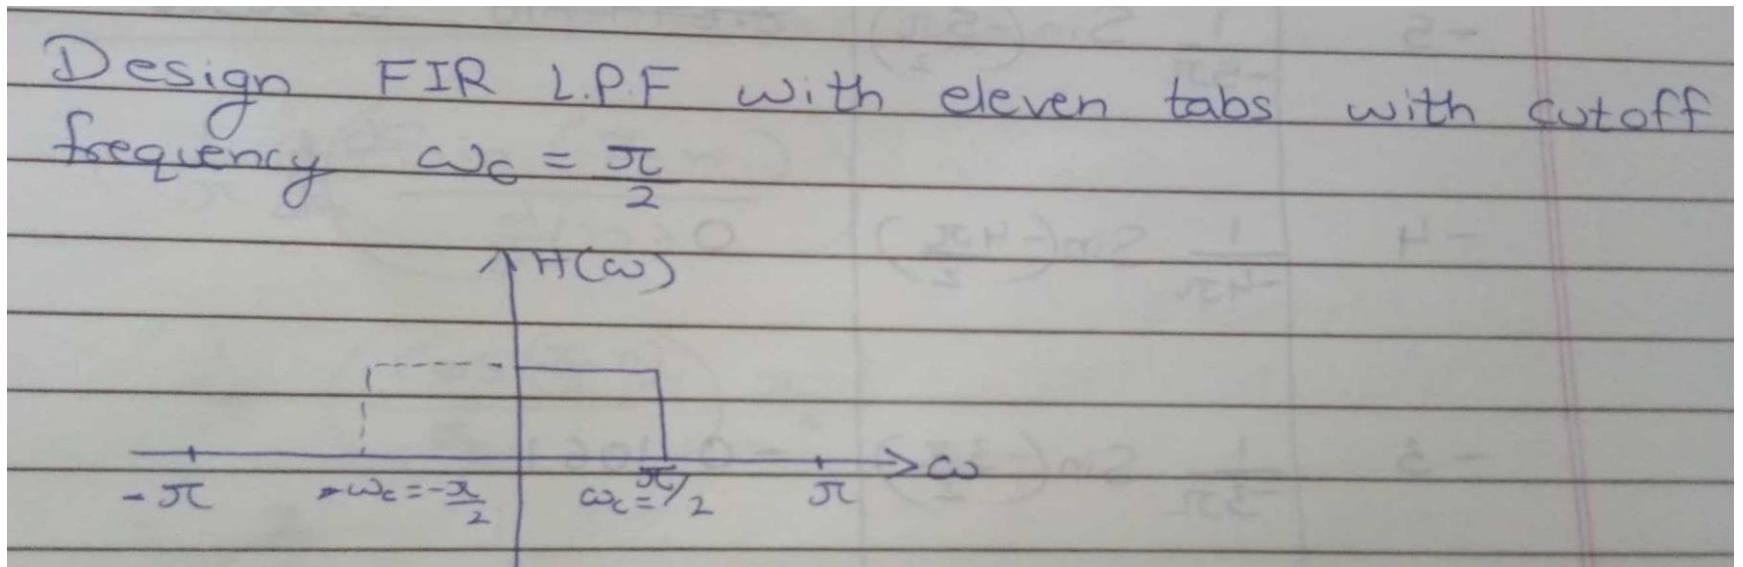 Design FIR L.P.F with eleven tabs with cutoff
frequency ωc = π/2
H(ω)
ω
-π
-ωc = -π/2
ωc = π/2
π